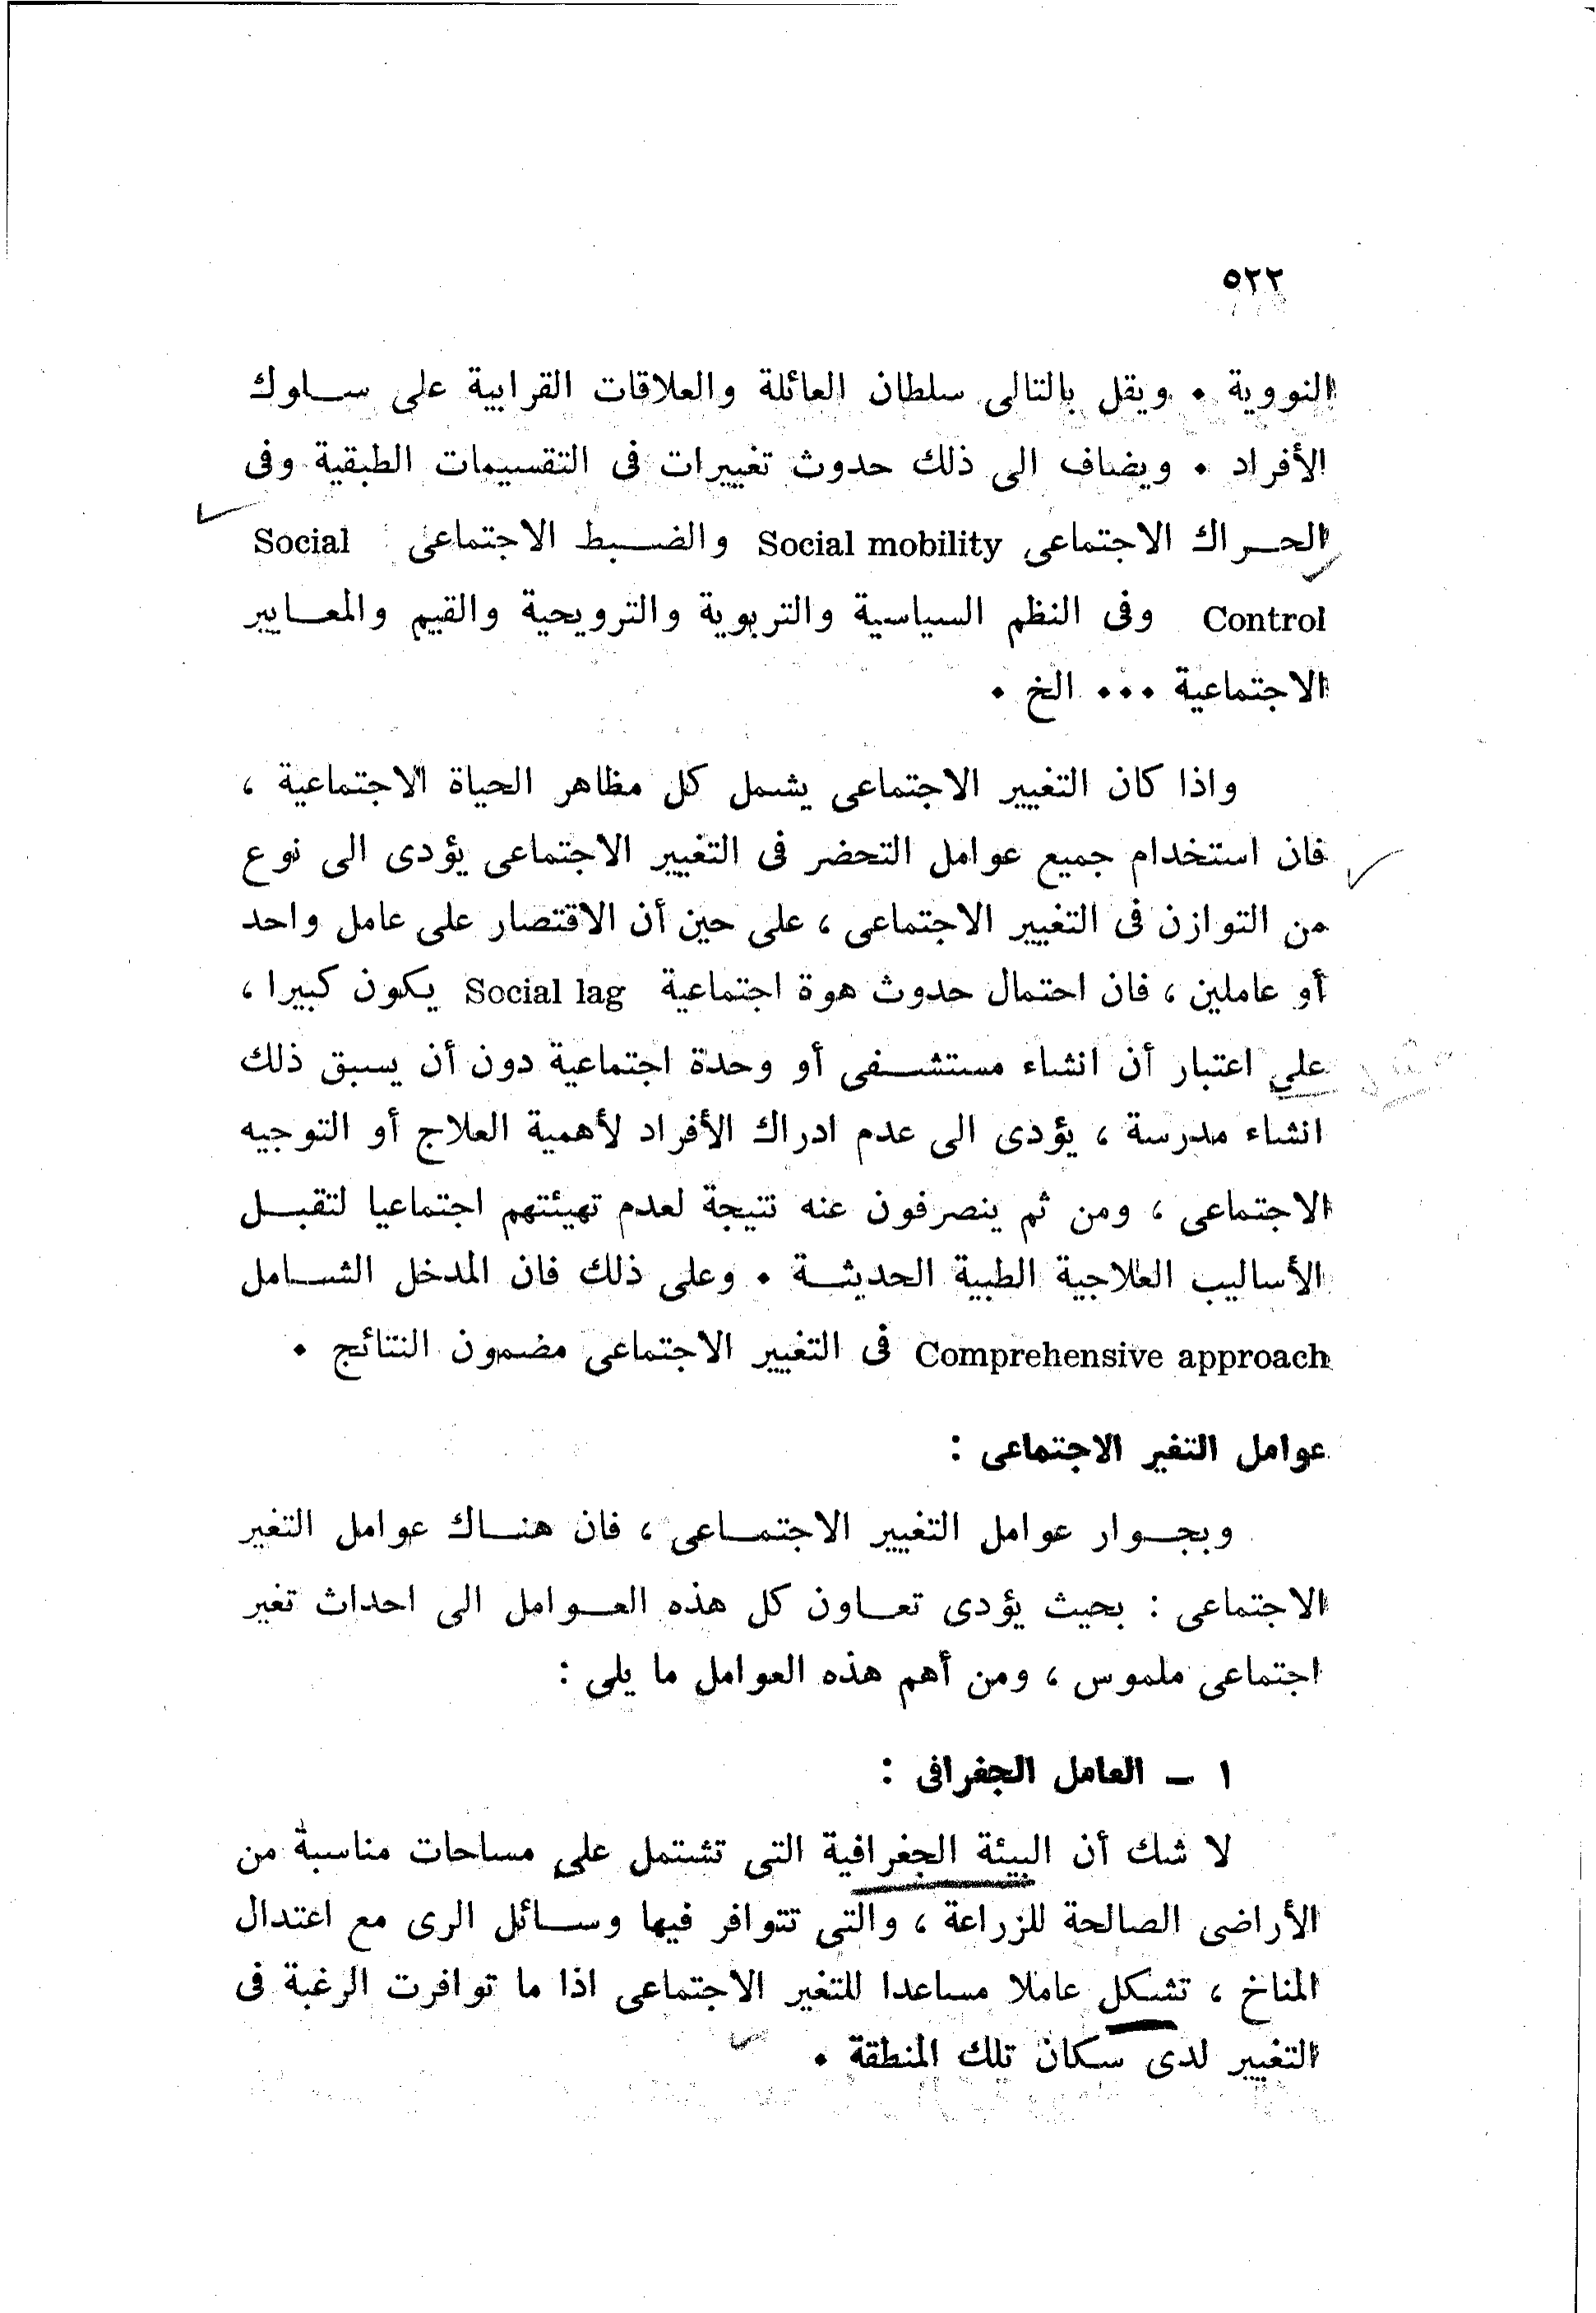 ٥٢٢
النووية . ويقل بالتالى سلطان العائلة والعلاقات القرابية على سلوك
الأفراد . ويضاف الى ذلك حدوث تغييرات فى التقسيمات الطبقية وفى
الحراك الاجتماعى Social mobility والضبط الاجتماعى Social
Control وفى النظم السياسية والتربوية والترويحية والقيم والمعايير
الاجتماعية ... الخ .
واذا كان التغيير الاجتماعى يشمل كل مظاهر الحياة الاجتماعية ،
فان استخدام جميع عوامل التحضر فى التغيير الاجتماعى يؤدى الى نوع
من التوازن فى التغيير الاجتماعى ، على حين أن الاقتصار على عامل واحد
أو عاملين ، فان احتمال حدوث هوة اجتماعية Social lag يكون كبيرا ،
على اعتبار أن انشاء مستشفى أو وحدة اجتماعية دون أن يسبق ذلك
انشاء مدرسة ، يؤدى الى عدم ادراك الأفراد لأهمية العلاج أو التوجيه
الاجتماعى ، ومن ثم ينصرفون عنه نتيجة لعدم تهيئتهم اجتماعيا لتقبل
الأساليب العلاجية الطبية الحديثة . وعلى ذلك فان المدخل الشامل
Comprehensive approach فى التغيير الاجتماعى مضمون النتائج .
عوامل التغير الاجتماعى :
وبجوار عوامل التغيير الاجتماعى ، فان هناك عوامل التغير
الاجتماعى : بحيث يؤدى تعاون كل هذه العوامل الى احداث تغير
اجتماعى ملموس ، ومن أهم هذه العوامل ما يلى :
١ – العامل الجغرافى :
لا شك أن البيئة الجغرافية التى تشتمل على مساحات مناسبة من
الأراضى الصالحة للزراعة ، والتى تتوافر فيها وسائل الرى مع اعتدال
المناخ ، تشكل عاملا مساعدا للتغير الاجتماعى اذا ما توافرت الرغبة فى
التغيير لدى سكان تلك المنطقة .